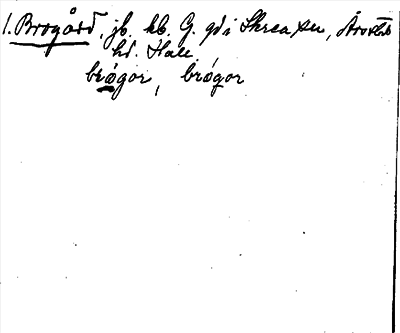 1. Brogård, jb. kb. G. gd i Skrea sn, Årstads
hd. Hall.
brógor, brógor